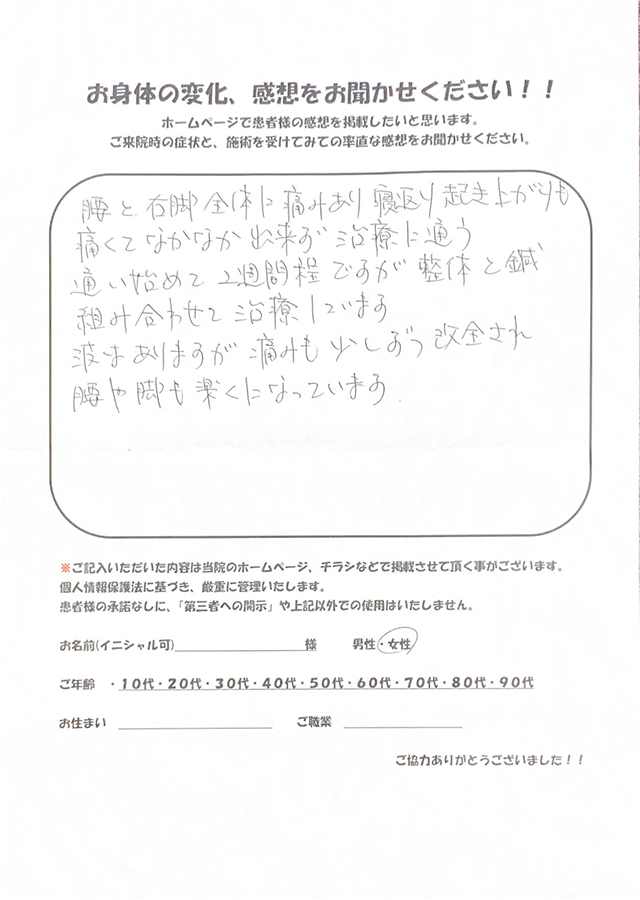 お身体の変化、感想をお聞かせください！！
ホームページで患者様の感想を掲載したいと思います。
ご来院時の症状と、施術を受けてみての率直な感想をお聞かせください。
腰と右脚全体に痛みあり寝返り起き上がりも
痛くてなかなか出来ず治療に通う
通い始めて2週間程ですが整体と鍼
組み合わせて治療しています
波はありますが痛みも少しづつ改善され
腰や脚も楽くになっています.
※ご記入いただいた内容は当院のホームページ、チラシなどで掲載させて頂く事がございます。
個人情報保護法に基づき、厳重に管理いたします。
患者様の承諾なしに、「第三者への開示」や上記以外での使用はいたしません。
お名前(イニシャル可) 様 男性・女性
ご年齢 ・10代・20代・30代・40代・50代・60代・70代・80代・90代
お住まい ご職業
ご協力ありがとうございました！！